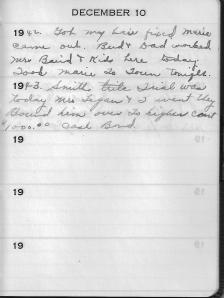 DECEMBER 10
1942. Got my hair fixed Marie
came out. Bud & Dad worked
Mrs Baird & Kids here today.
Took Marie to Town tonight.
1943. Smith title Trial was
today Mrs & I went They
Bound him over to higher Court
$1000.00 Cash Bond.
19
19
19